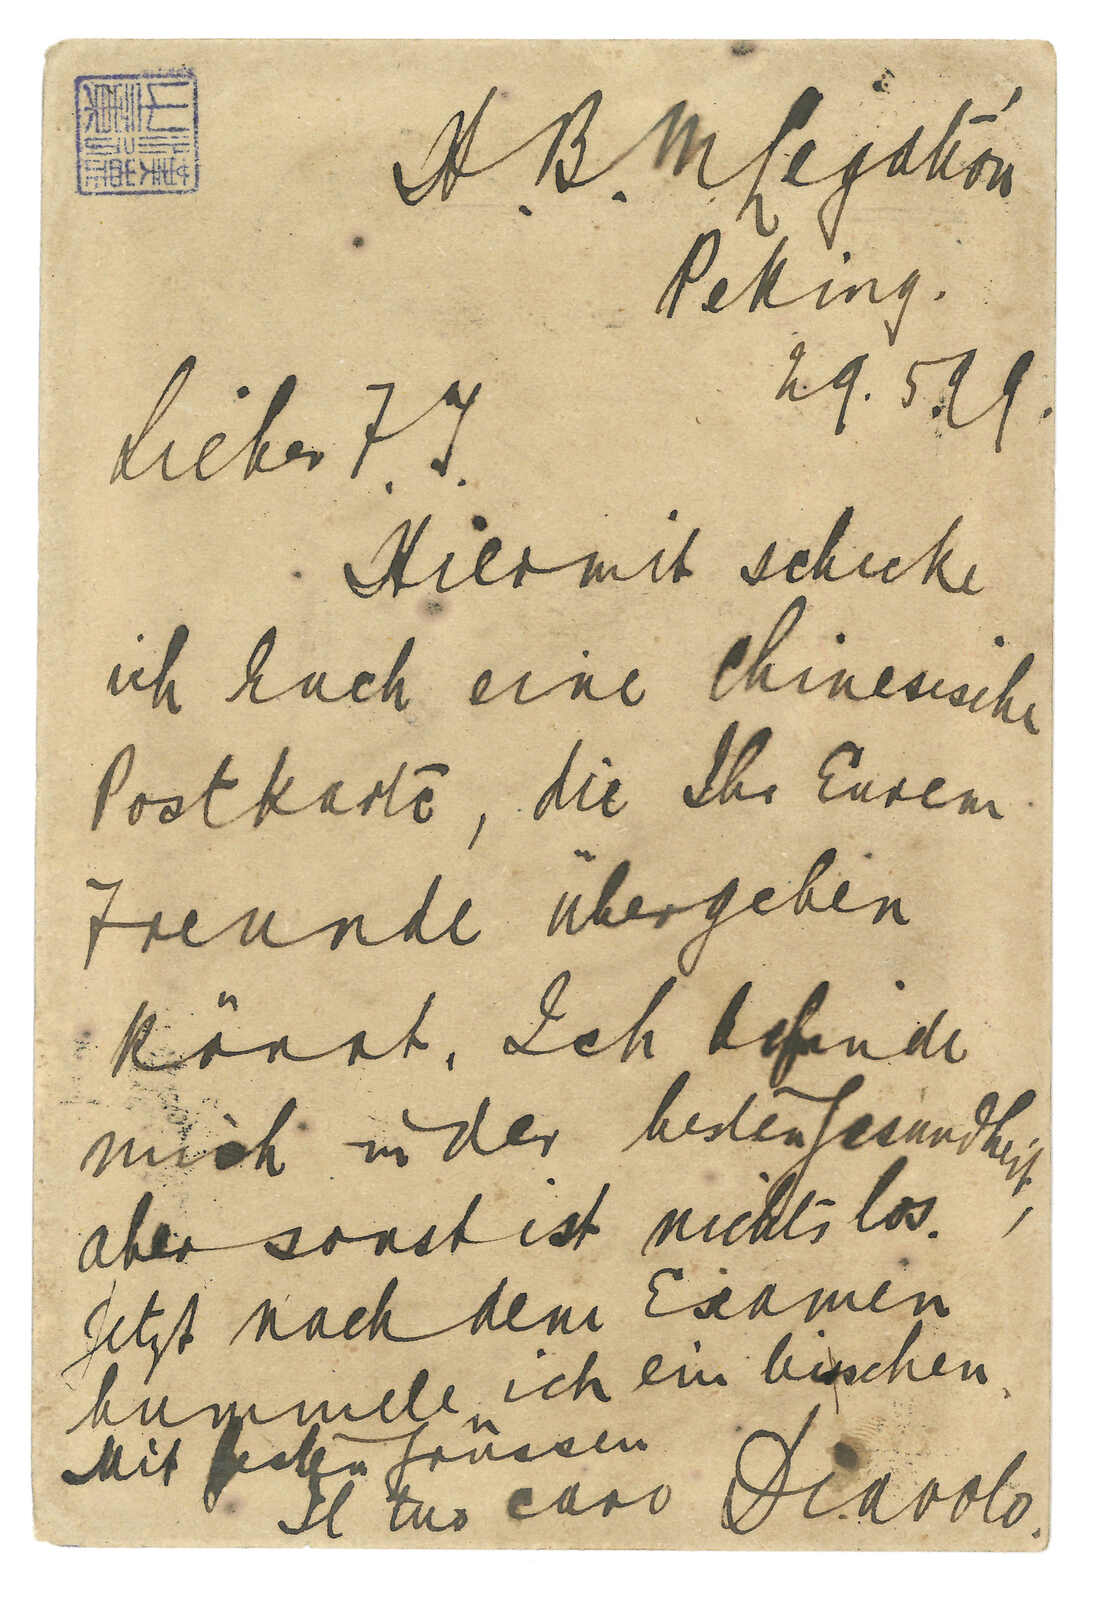 H. B. M Legation
Peking.
29. 5. 99.
Lieber F. J.
Hiermit schicke
ich Euch eine chinesische
Postkarte, die Ihr Eurem
Freunde übergeben
könnt. Ich befinde
mich in der besten Gesundheit,
aber sonst ist nichts los.
Jetzt nach dem Examen
bummele ich ein bischen.
Mit besten Grüssen
Il tuo caro Diavolo.